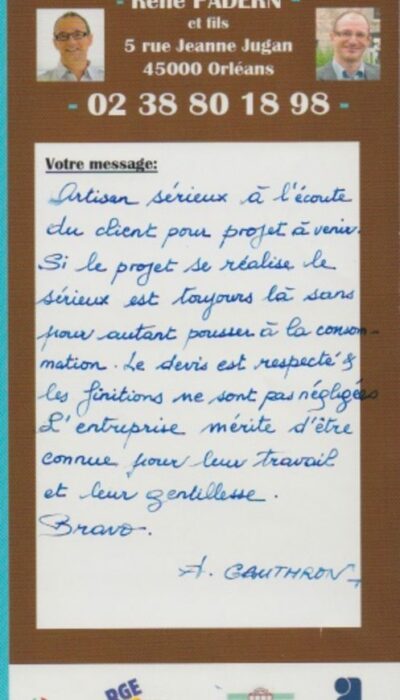 - René PADERN -
et fils
5 rue Jeanne Jugan
45000 Orléans
- 02 38 80 18 98 -
Votre message:
Artisan sérieux à l'écoute
du client pour projet à venir.
Si le projet se réalise le
sérieux est toujours là sans
pour autant pousser à la consom-
mation. Le devis est respecté &
les finitions ne sont pas négligées
L'entreprise mérite d'être
connue pour leur travail
et leur gentillesse.
Bravo.
A. GAUTHRON
RGE